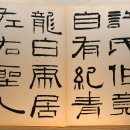 許氏作竟
自有紀青
龍白虎居
左右聖人